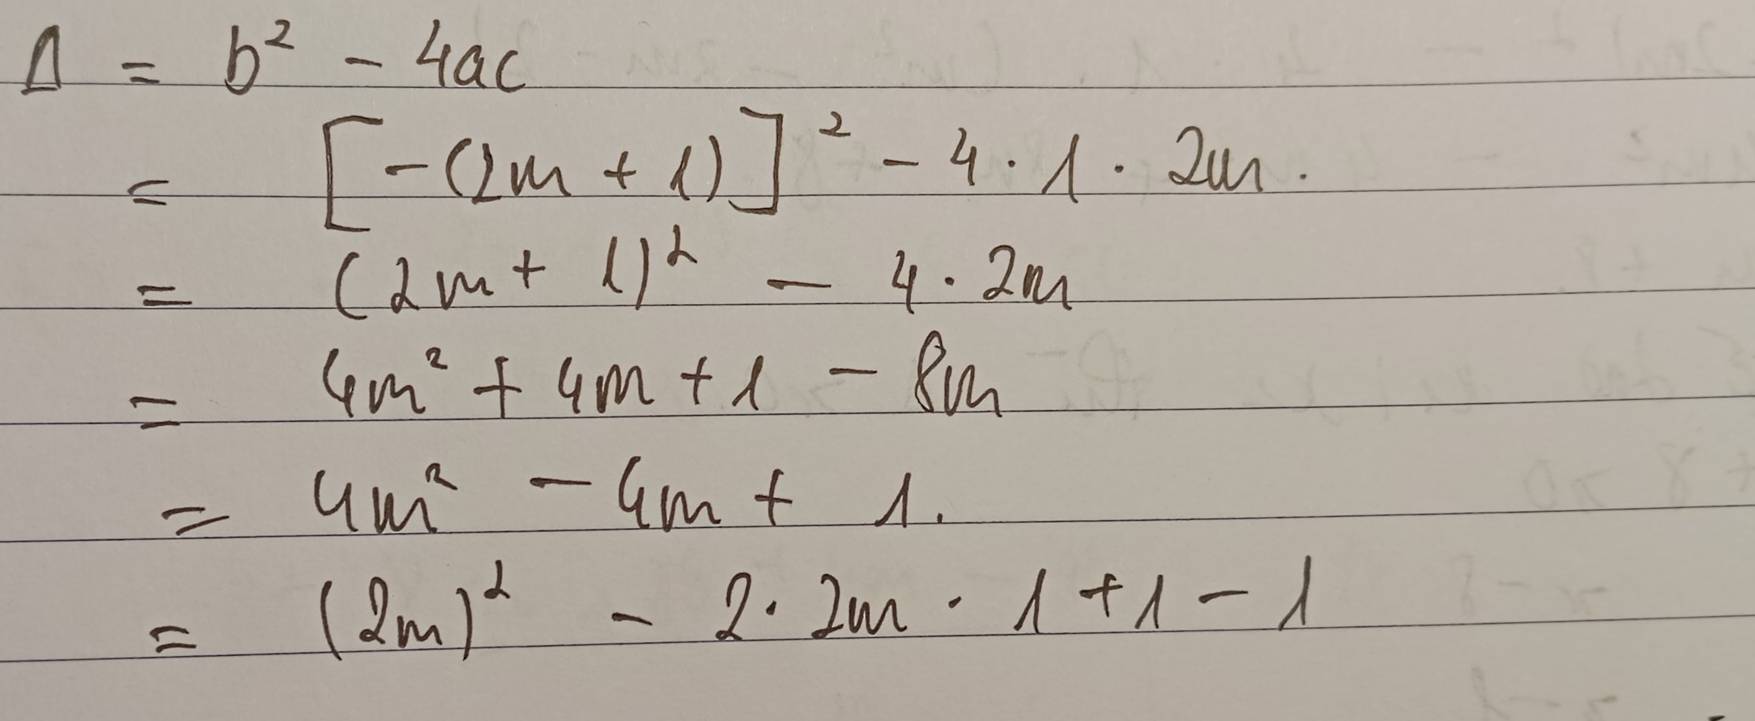 Δ = b² - 4ac
= [-(2m + 1)]² - 4 · 1 · 2m.
= (2m + 1)² - 4 · 2m
= 4m² + 4m + 1 - 8m
= 4m² - 4m + 1.
= (2m)² - 2 · 2m · 1 + 1 - 1